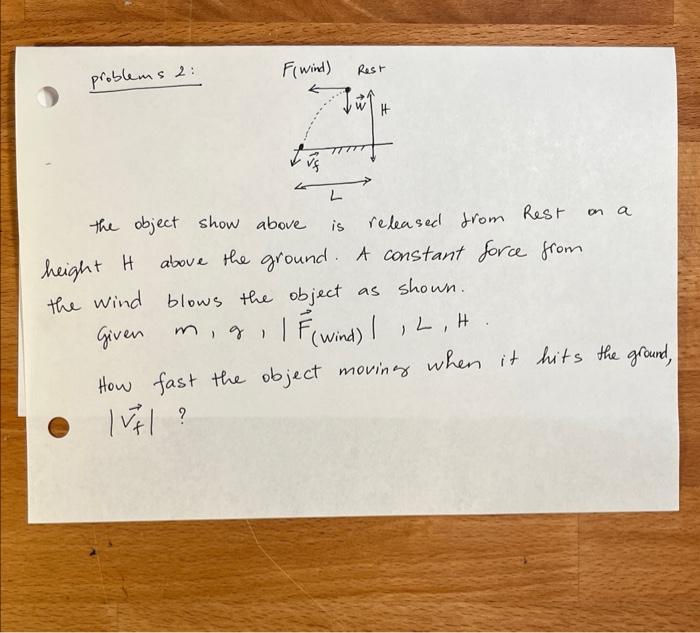 problems 2:
F(wind) Rest
W H
Vf
L
the object show above is released from Rest on a
height H above the ground. A constant force from
the wind blows the object as shown.
Given m, g, |F(wind)|, L, H.
How fast the object moving when it hits the ground,
|Vf| ?